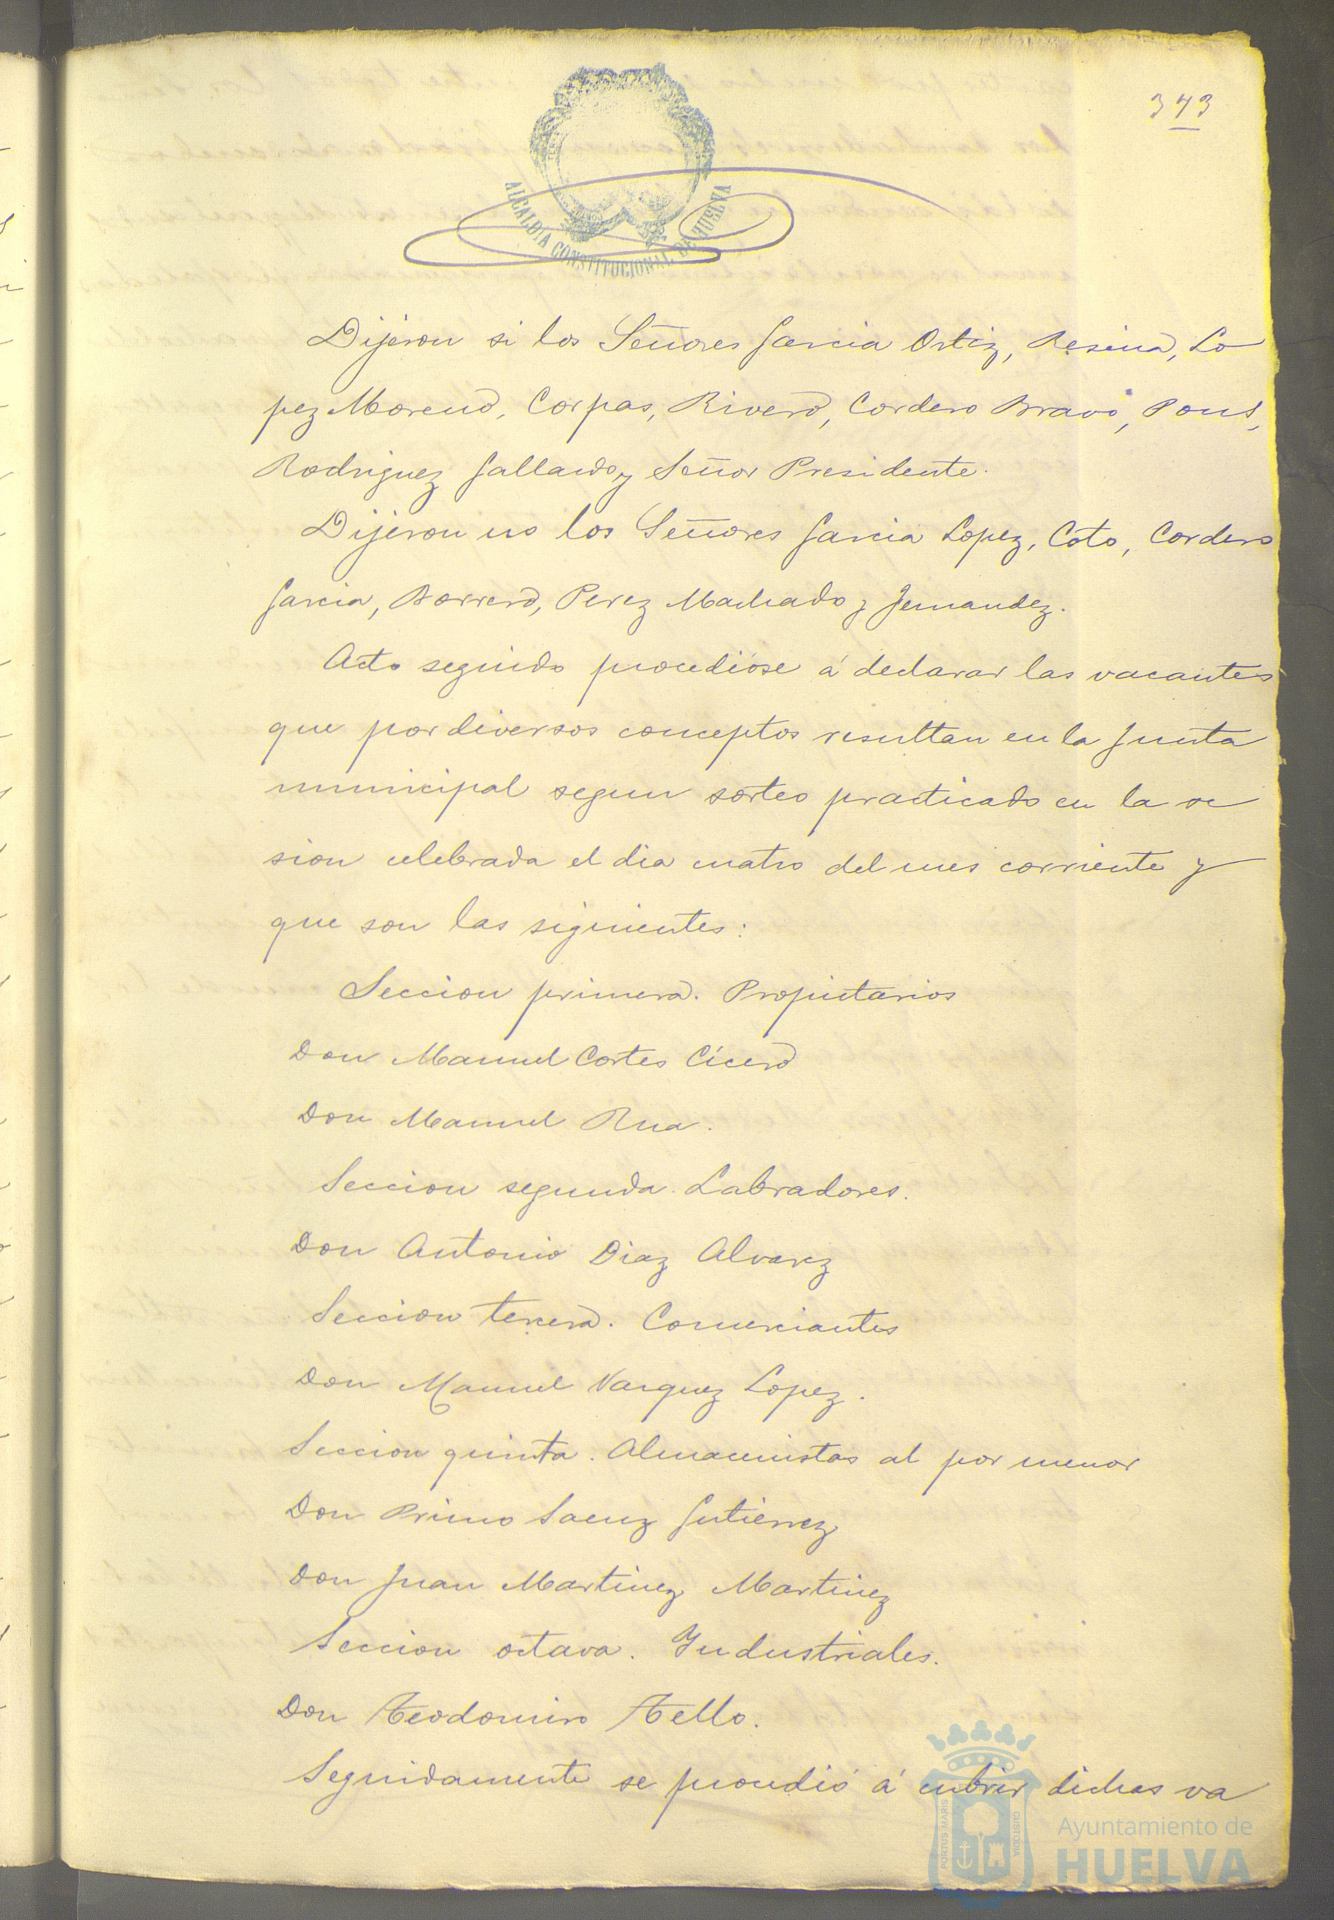 343
ALCALDÍA CONSTITUCIONAL DE HUELVA
Dijeron si los Señores Garcia Ortiz, Resina, Lo
pez Moreno, Corpas, Rivero, Cordero Bravo, Pous,
Rodriguez Gallardo y Señor Presidente.
Dijeron no los Señores Garcia Lopez, Coto, Cordero
Garcia, Borrero, Perez Machado y Fernandez.
Acto seguido procedióse á declarar las vacantes
que por diversos conceptos resultan en la Junta
municipal segun sorteo practicado en la se
sion celebrada el dia cuatro del mes corriente y
que son las siguientes:
Seccion primera. Propietarios
Don Manuel Cortes Cícero
Don Manuel Rua.
Seccion segunda. Labradores.
Don Antonio Diaz Alvarez
Seccion tercera. Comerciantes
Don Manuel Vazquez Lopez.
Seccion quinta. Almacenistas al por menor
Don Primo Saenz Gutierrez
Don Juan Martinez Martinez
Seccion octava. Industriales.
Don Teodomiro Tello.
Seguidamente se procedió á cubrir dichas va
PORTUS MARIS CUSTODIA
Ayuntamiento de
HUELVA